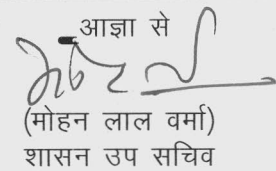 आज्ञा से
(मोहन लाल वर्मा)
शासन उप सचिव